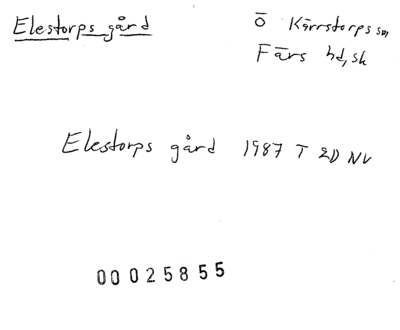 Elestorps gård
Ö Kärrstorps sn
Färs hd, sk
Elestorps gård 1987 T 2D NV
00025855